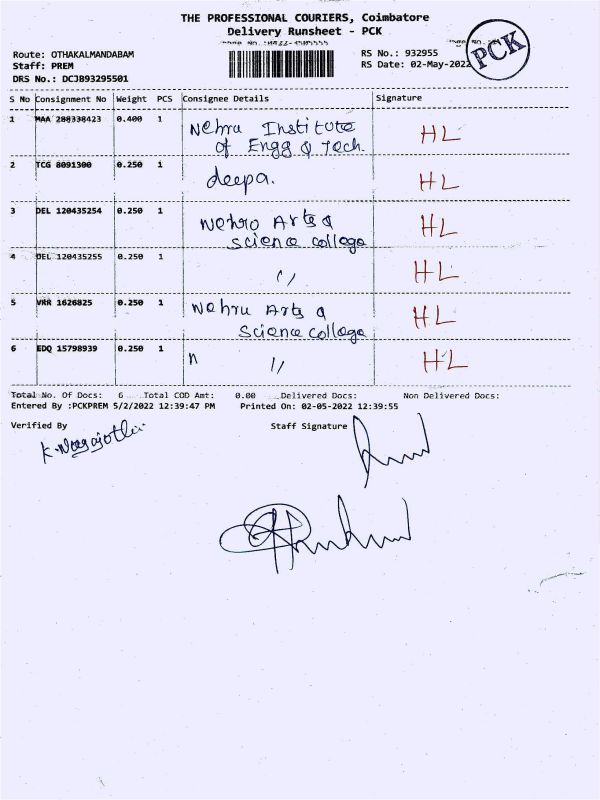 THE PROFESSIONAL COURIERS, Coimbatore
Delivery Runsheet - PCK
PCK
Route: OTHAKALMANDABAM
RS No.: 932955
Staff: PREM
RS Date: 02-May-2022
DRS No.: DCJB93295501
S No Consignment No Weight PCS Consignee Details Signature
1 MAA 280338423 0.400 1 Nehru Institute HL
of Engg & Tech.
2 TCG 8091300 0.250 1 deepa. HL
3 DEL 120435254 0.250 1 Nehro Arts & HL
science college
4 DEL 120435255 0.250 1 〃 HL
5 VRR 1626825 0.250 1 Nehru Arts & HL
Science college
6 EDQ 15798939 0.250 1 n 〃 HL
Total No. Of Docs: 6 Total COD Amt: 0.00 Delivered Docs: Non Delivered Docs:
Entered By :PCKPREM 5/2/2022 12:39:47 PM Printed On: 02-05-2022 12:39:55
Verified By Staff Signature
K. Nagajothi